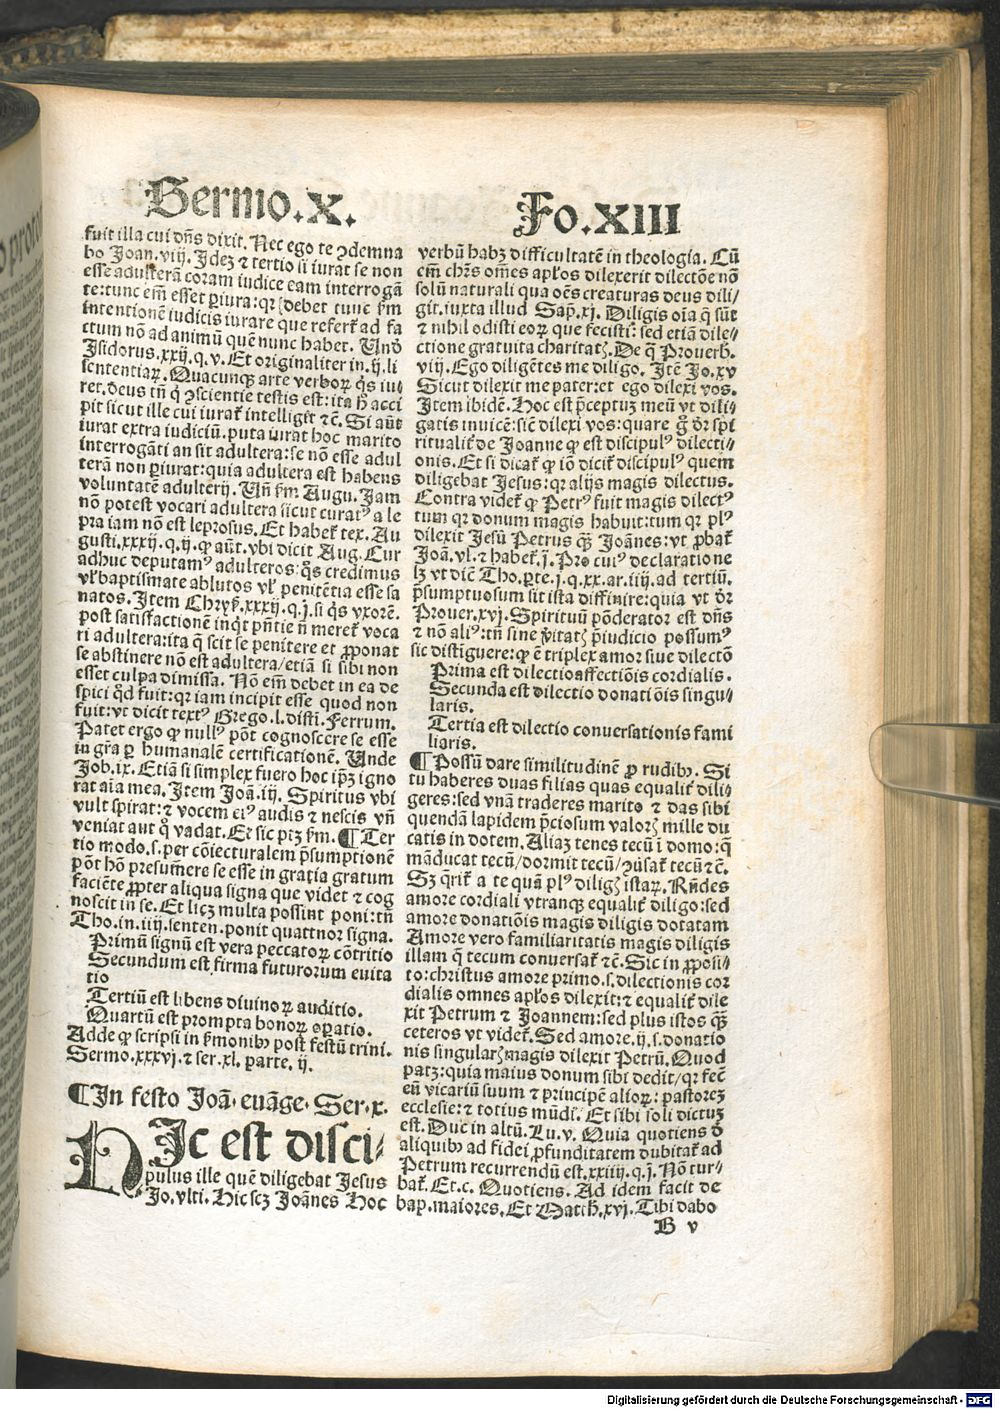 Sermo.X.
Fo.XIII
fuit illa cui dñs dixit. Nec ego te ꝯdemna
bo Joan.viij. Idez ⁊ tertio si iurat se non
esse adulterã coram iudice eam interrogã
te: tunc em̃ esset ꝑiura: qꝛ debet tunc ẜm
intentionẽ iudicis iurare que refert̃ ad fa
ctum nõ ad animũ quẽ nunc habet. Unð
Isidorus.xxij.q.v. Et originaliter in.ij.li
sententiaꝝ. Quacunqꝫ arte verboꝝ q̃s iu
ret. deus tñ q̃ ꝯscientie testis est: ita h̃ acci
pit sicut ille cui iurat̃ intelligit ⁊c̃. Si aũt
iurat extra iudiciũ. puta iurat hoc marito
interrogãti an sit adultera: se nõ esse adul
terã non ꝑiurat: quia adultera est habens
voluntatẽ adulterij. Uñ ẜm Augu. Jam
nõ potest vocari adultera sicut curatꝰ a le
pra iam nõ est leprosus. Et habet̃ tex. Au
gusti.xxxij.q.ij. ꝙ aũt. vbi dicit Aug. Cur
adhuc deputamꝰ adulteros: q̃s credimus
vl̃ baptismate ablutos vl̃ penitẽtia esse sa
natos. Item Chryẜ.xxxij.q.j. si q̃s vxorẽ.
post satisfactionẽ inq̃t pñtie ñ meret̃ voca
ri adultera: ita q̃ scit se penitere et ꝓponat
se abstinere nõ est adultera/etiã si sibi non
esset culpa dimissa. Nõ em̃ debet in ea de
spici q̃d fuit: qꝛ iam incipit esse quod non
fuit: vt dicit textꝰ Grego.l.disti. Ferrum.
Patet ergo ꝙ nullꝰ põt cognoscere se esse
in gr̃a ꝑ humanalẽ certificationẽ. Unde
Job.ix. Etiã si simplex fuero hoc ip̃z igno
rat aĩa mea. Item Joã.iij. Spiritus vbi
vult spirat: ⁊ vocem eiꝰ audis ⁊ nescis vñ
veniat aut q̃ vadat. Et sic ptꝫ ẜm. ¶ Ter
tio modo.s. per cõiecturalem p̃sumptionẽ
põt hõ presumere se esse in gratia gratum
faciẽte ꝓpter aliqua signa que videt ⁊ cog
noscit in se. Et licꝫ multa possint poni: tñ
Tho.in.iiij.senten. ponit quattuor signa.
Primũ signũ est vera peccatoꝝ cõtritio
Secundum est firma futurorum euita
tio
Tertiũ est libens diuinoꝝ auditio.
Quartũ est prompta bonoꝝ oꝑatio.
Adde ꝙ scripsi in ẜmonibꝫ post festũ trini.
Sermo.xxxvj. ⁊ ser.xl. parte.ij.
¶ In festo Joã. euãge. Ser.x.
HIc est disci⸗
pulus ille quẽ diligebat Jesus
Jo.vlti. Hic scꝫ Joãnes Hoc
verbũ habꝫ difficultatẽ in theologia. Cũ
em̃ chr̃s om̃es apl̃os dilexerit dilectõe nõ
solũ naturali qua oẽs creaturas deus dili⸗
git. iuxta illud Sap̃.xj. Diligis oĩa q̃ sũt
⁊ nihil odisti eoꝝ que fecisti: sed etiã dile⸗
ctione gratuita charitatꝭ. De q̃ Prouerb.
viij. Ego diligẽtes me diligo. Itẽ Jo.xv
Sicut dilexit me pater: et ego dilexi vos.
Item ibidẽ. Hoc est p̃ceptuꝫ meũ vt dili⸗
gatis inuicẽ: siẽ dilexi vos: quare g̃ dr̃ spi
ritualit̃ de Joanne ꝙ est discipulꝰ dilecti⸗
onis. Et si dicat̃ ꝙ iõ dicit̃ discipulꝰ quem
diligebat Jesus: qꝛ alijs magis dilectus.
Contra videt̃ ꝙ Petrꝰ fuit magis dilectꝰ
tum qꝛ donum magis habuit: tum qꝛ plꝰ
dilexit Jesũ Petrus q̃ꝫ Joãnes: vt ꝓbat̃
Joã.vl. ⁊ habet̃.j. Pro cuiꝰ declaratione
lꝫ vt dicẽ Tho.p̃te.j.q.xx.ar.iiij. ad tertiũ.
p̃sumptuosum sit ista diffinire: quia vt dr̃
Prouer.xvj. Spirituũ põderator est dñs
⁊ nõ aliꝰ: tñ sine ṽitatꝭ p̃iudicio possumꝰ
sic distiguere: ꝙ ẽ triplex amor siue dilectõ
Prima est dilectio affectiõis cordialis.
Secunda est dilectio donatiõis singu⸗
laris.
Tertia est dilectio conuersationis fami
liaris.
¶ Possũ dare similitudinẽ ꝓ rudibꝫ. Si
tu haberes duas filias quas equalit̃ dili⸗
geres: sed vnã traderes marito ⁊ das sibi
quendã lapidem p̃ciosum valorꝭ mille du
catis in dotem. Aliaꝫ tenes tecũ ĩ domo: q̃
mãducat tecũ/dormit tecũ/ꝯũsat̃ tecũ ⁊c̃.
Sꝫ q̃rit̃ a te quã plꝰ diligꝭ istaꝝ. Rñdes
amore cordiali vtranque equalit̃ diligo: sed
amore donatiõis magis diligis dotatam
Amore vero familiaritatis magis diligis
illam q̃ tecum conuersat̃ ⁊c̃. Sic in ꝓposi⸗
to: christus amore primo.s. dilectionis cor
dialis omnes apl̃os dilexit: ⁊ equalit̃ dile
xit Petrum ⁊ Joannem: sed plus istos q̃ꝫ
ceteros vt videt̃. Sed amore.ij.s. donatio
nis singularꝭ magis dilexit Petrũ. Quod
patꝫ: quia maius donum sibi dedit/qꝛ fec̃
eũ vicariũ suum ⁊ principẽ alioꝝ: pastoreꝫ
ecclesie: ⁊ totius mũdi. Et sibi soli dictuꝫ
est. Duc in altũ. Lu.v. Quia quotiens ð
aliquibꝫ ad fidei ꝓfunditatem dubitat̃ ad
Petrum recurrendũ est.xxiiij.q.j. Nõ tur⸗
bat̃. Et.c. Quotiens. Ad idem facit de
bap. maiores. Et Matth.xvj. Tibi dabo
B v
Digitalisierung gefördert durch die Deutsche Forschungsgemeinschaft - DFG